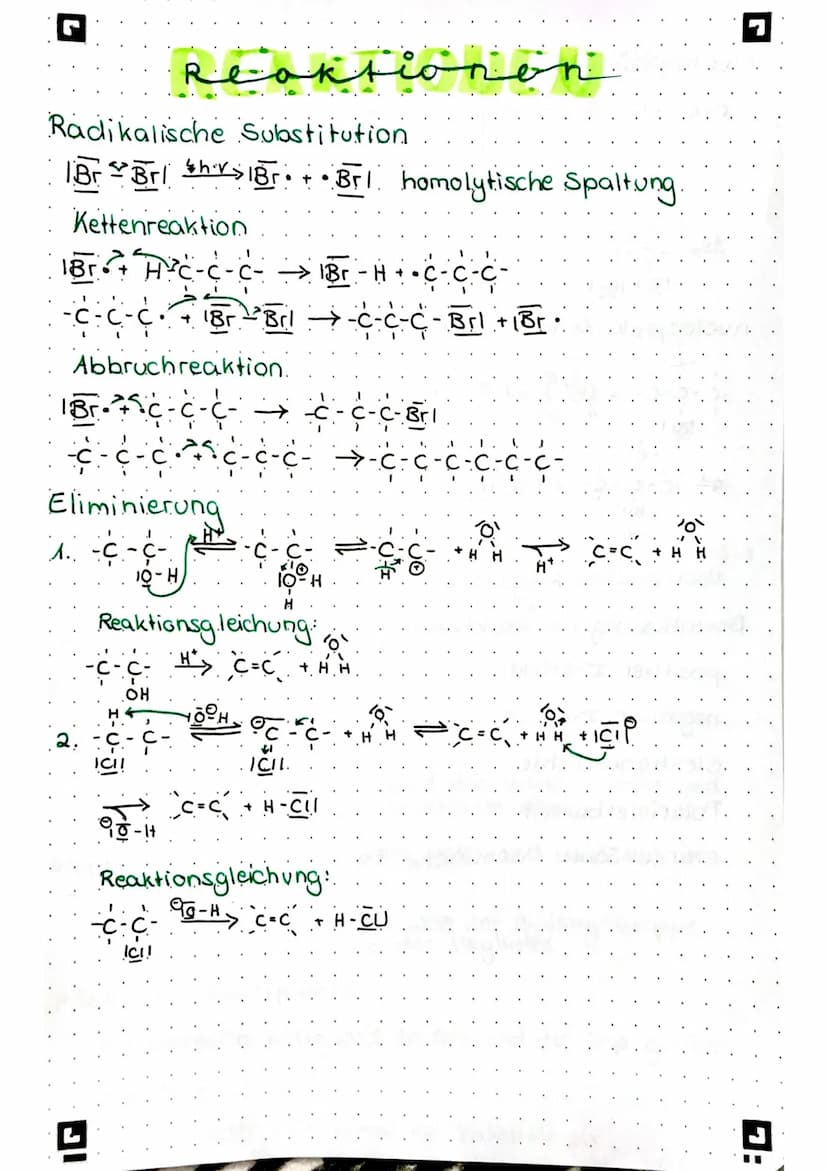 REAKTIONEN
Reaktionen
Radikalische Substitution
|Br - Br| h·ν → |Br• + •Br| homolytische Spaltung
Kettenreaktion
|Br• + H-C-C-C- → |Br-H + •C-C-C-
-C-C-C• + |Br-Br| → -C-C-C-Br| + |Br•
Abbruchreaktion
|Br• + •C-C-C- → -C-C-C-Br|
-C-C-C• + •C-C-C- → -C-C-C-C-C-C-
Eliminierung
1. -C-C- H⁺ ⇌ -C-C- ⇌ -C-C- + H O H → C=C + H O H
|O-H |O⊕-H H ⊕ H⁺
H
Reaktionsgleichung:
-C-C- H⁺ → C=C + H O H
OH
H |O⊖H
2. -C-C- ⇌ ⊖C-C- + H O H ⇌ C=C + H O H + |Cl|⊖
|Cl| |Cl|
→ C=C + H-Cl|
⊖|O-H
Reaktionsgleichung:
-C-C- ⊖|O-H → C=C + H-Cl|
|Cl|